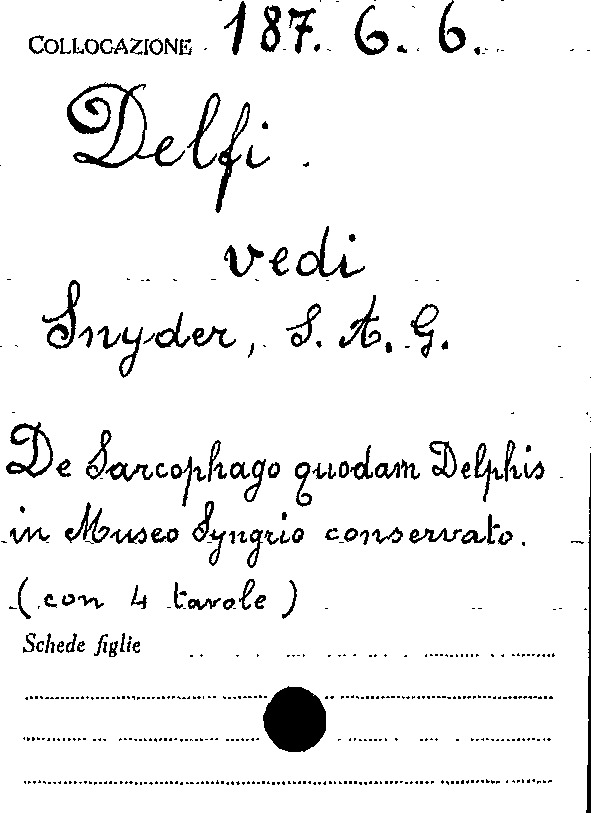 COLLOCAZIONE 187. 6. 6.
Delfi.
vedi
Snyder, S. A. G.
De Sarcophago quodam Delphis
in Museo Syngrio conservato.
(con 4 tavole)
Schede figlie